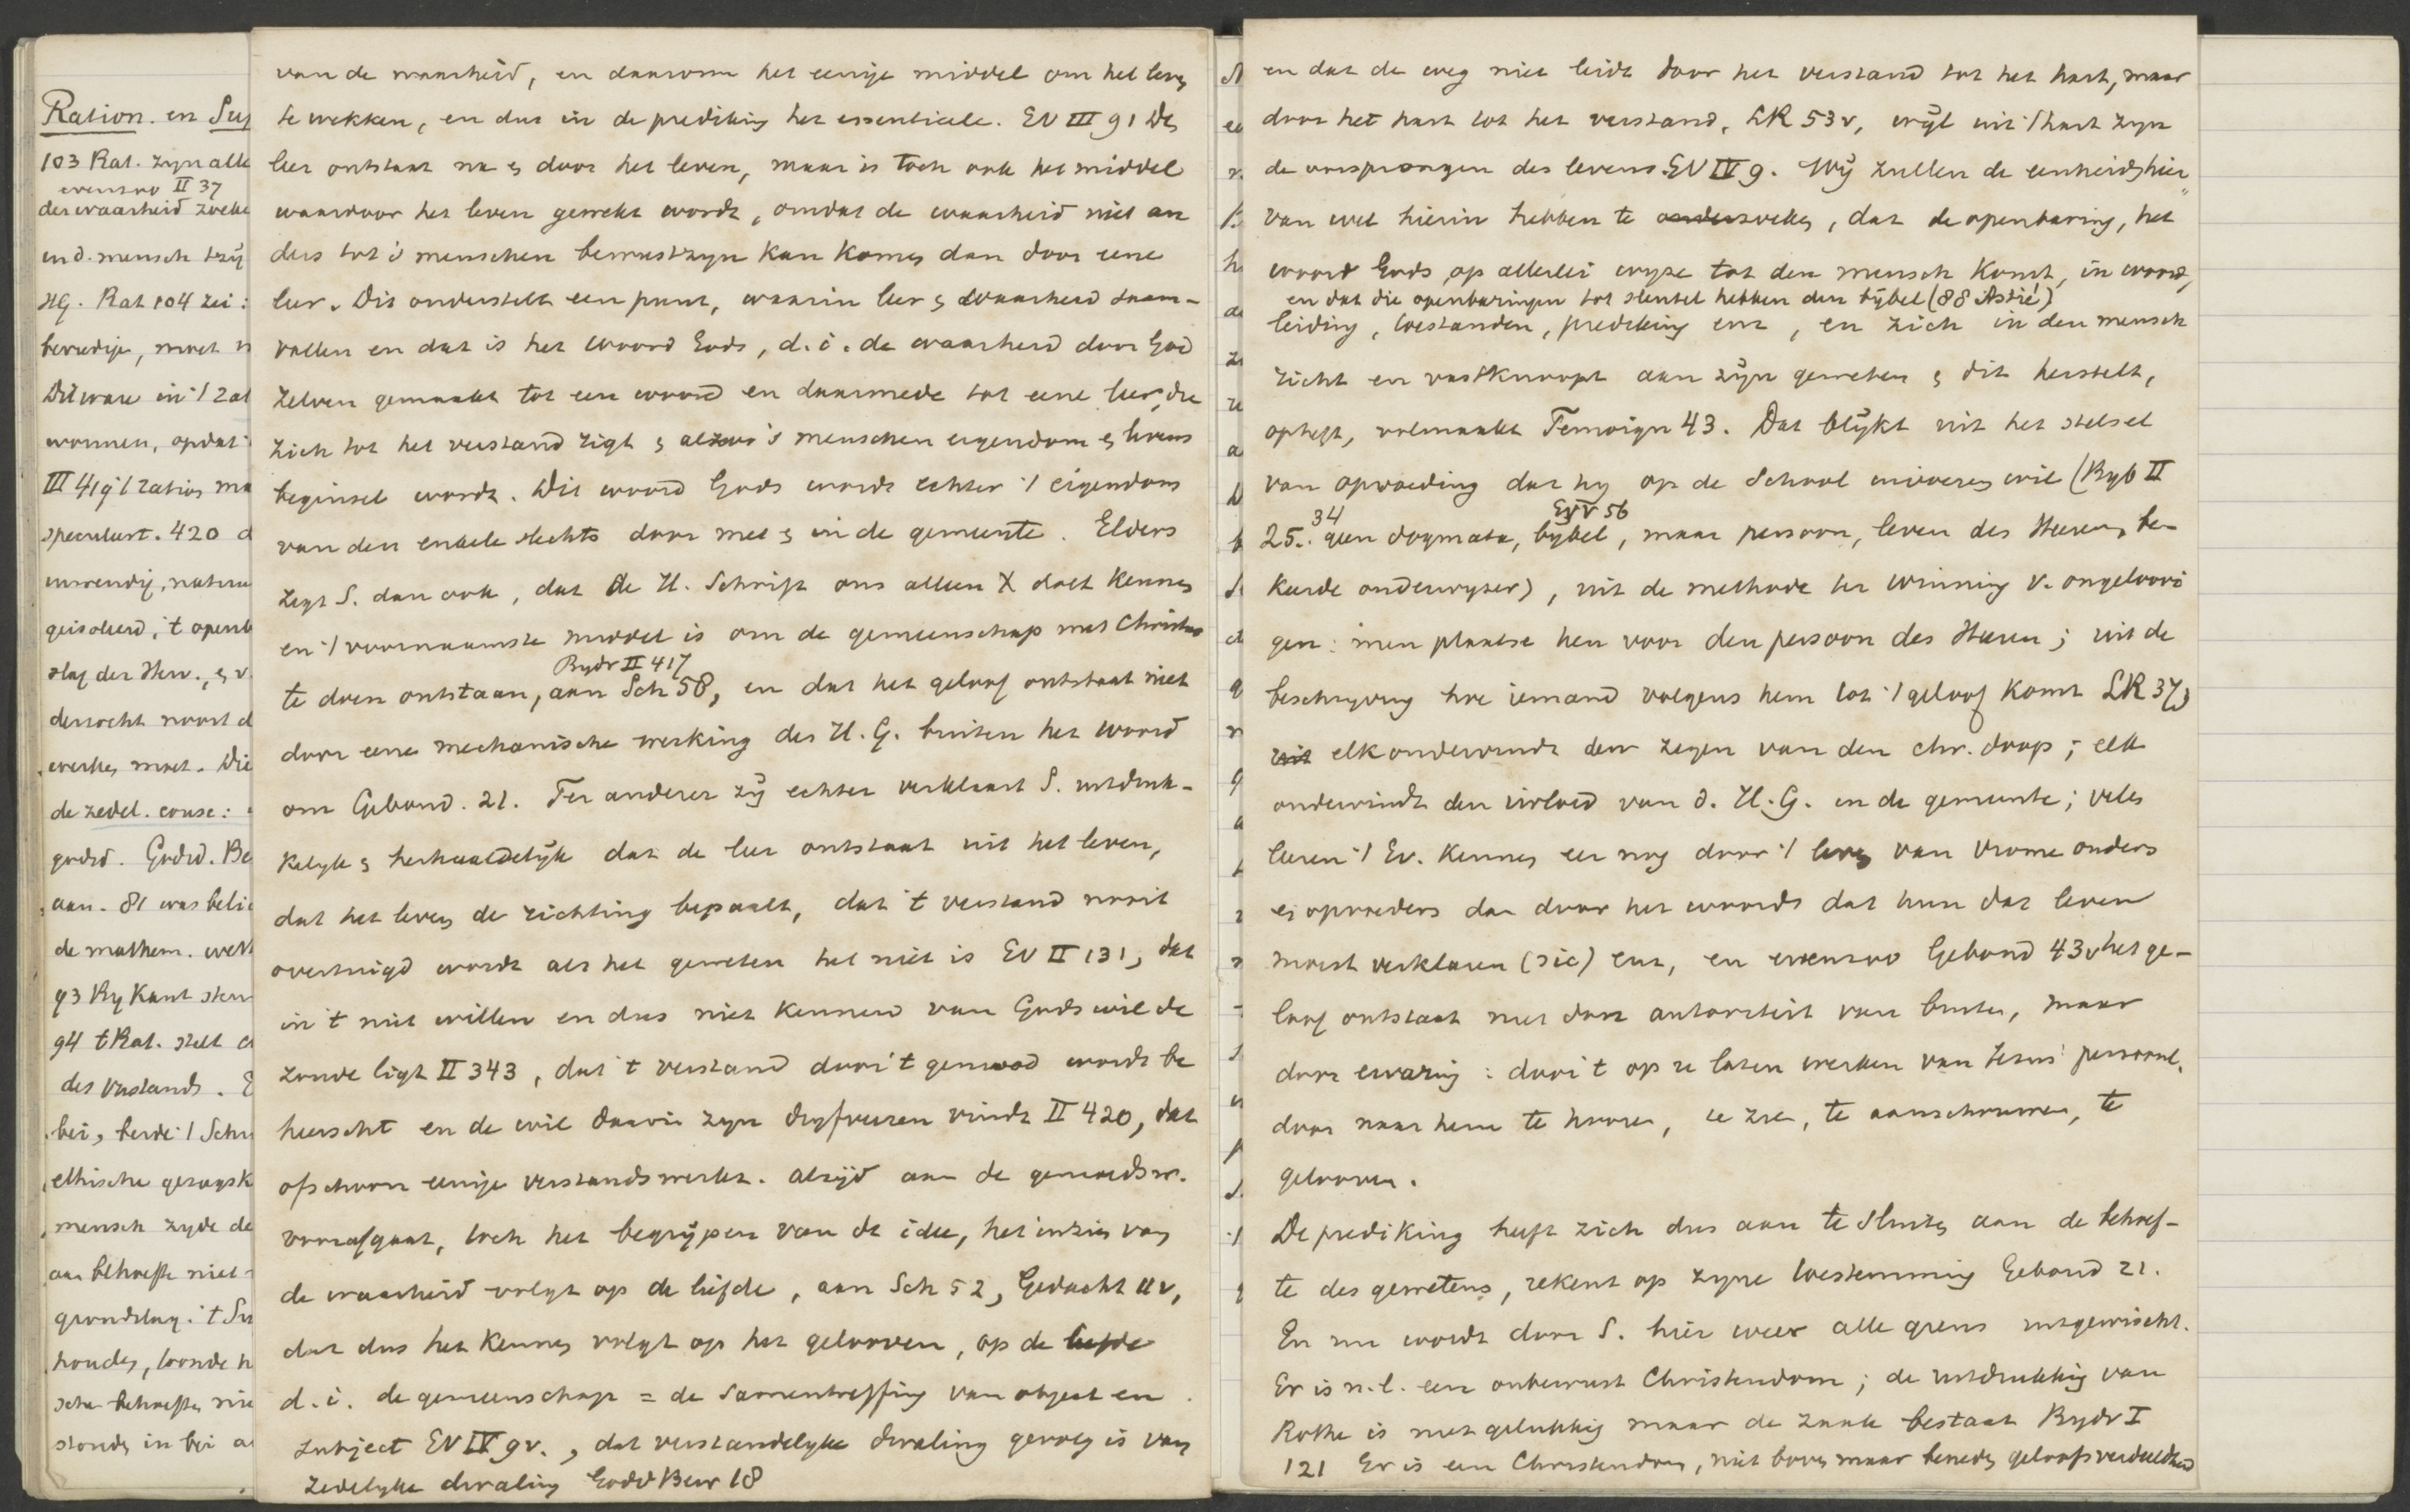 Ration. en Sup
103 Rat. zyn alle
evenzoo II 37
der waarheid zoeke
en d. mensch tzij
HG. Rat 104 zei:
bevredige, moet
Dit ware in 't rat
wonnen, opdat
III 419 't ratio
speculeert. 420 d
inwendig, natuu
geisoleerd, 't openb
slag der Herv., en v.
derzocht noost d
werken moet. Die
de zedel. consc:
godsd. Godsd. Be
aan. 81 was belie
de mathem. wett
93 By Kant
94 t Rat. stelt
des verstands.
bei, beide 't Schr
ethische
mensch zyde de
aan behoefte niet
grondslag. 't Su
houden, toonde
sche behoeften
stonds in bei a
van de waarheid, en daarom het eenige middel om het leven
te wekken, en dus in de prediking het essentieele. EV III 91 De
leer ontstaat na en door het leven, maar is toch ook het middel
waardoor het leven gewekt wordt, omdat de waarheid niet an
ders tot 's menschen bewustzyn kan komen dan door eene
leer. Dit onderstelt een punt, waarin leer en waarheid saam-
vallen en dat is het Woord Gods, d.i. de waarheid door God
zelven gemaakt tot een woord en daarmede tot eene leer, die
zich tot het verstand rigt en alzoo 's menschen eigendom en levens
beginsel wordt. Dit woord Gods wordt echter 't eigendom
van den enkele slechts door met en in de gemeente. Elders
zegt S. dan ook, dat de H. Schrift ons alleen X doet kennen
en 't voornaamste middel is om de gemeenschap met Christus
Bydr II 417
te doen ontstaan, aan Sch 58, en dat het geloof ontstaat niet
door eene mechanische werking des H. G. buiten het woord
om Gebond. 21. Ter anderer zij echter verklaart S. uitdruk-
kelyk en herhaaldelijk dat de leer ontstaat uit het leven,
dat het leven de richting bepaalt, dat 't verstand nooit
overtuigd wordt als het geweten het niet is EV II 131, dat
in 't niet willen en dus niet kennen van Gods wil de
zonde ligt II 343, dat 't verstand door 't gemoed wordt be
heerscht en de wil daarin zyn dryfveeren vindt II 420, dat
ofschoon eenige verstandswerkz. altijd aan de gemoedsw.
voorafgaat, toch het begrijpen van de idee, het inzien van
de waarheid volgt op de liefde, aan Sch 52, Gedacht 11v,
dat dus het kennen volgt op het gelooven, op de liefde
d.i. de gemeenschap = de samentreffing van object en
subject EV IV 9v., dat verstandelyke dwaling gevolg is van
zedelyke dwaling Godd Bew 18
en dat de weg niet leidt door het verstand tot het hart, maar
door het hart tot het verstand, LR 53v, wijl uit 't hart zyn
de oorsprongen des levens. EV IV 9. Wij zullen de eenheid hier
van wel hierin hebben te zoeken, dat de openbaring, het
woord Gods, op allerlei wyze tot den mensch komt, in woord,
en dat die openbaringen tot sleutel hebben den bijbel (88 Astié)
leiding, toestanden, prediking enz, en zich in den mensch
richt en vastknoopt aan zijn geweten en dit herstelt,
opheft, volmaakt Temoign 43. Dat blijkt uit het stelsel
van opvoeding dat hy op de School invoeren wil (Byb II
34 EV V 56
25.. geen dogmata, bijbel, maar persoon, leven des Heeren, be-
keerde onderwyzer), uit de methode ter winning v. ongeloovi
gen: men plaatse hen voor den persoon des Heeren; uit de
beschryving hoe iemand volgens hem tot 't geloof komt LR 37,
uit elk ondervindt den zegen van den chr. doop; elk
ondervindt den invloed van d. H. G. in de gemeente; velen
leeren 't Ev. kennen eer nog door 't leven van vrome ouders
en opvoeders dan door het woord dat hun dat leven
moest verklaren (sic) enz, en evenzoo Gebond 43v het ge-
loof ontstaat niet door autoriteit van buiten, maar
door ervaring: door 't op ze laten werken van Jezus' persoonl.
door naar hem te hooren, te zien, te aanschouwen, te
gelooven.
De prediking heeft zich dus aan te sluiten aan de behoef-
te des gewetens, rekent op zyne toestemming Gebond 21.
En nu wordt door S. hier weer alle grens uitgewischt.
Er is n.l. een onbewust Christendom; de uitdrukking van
Rothe is niet gelukkig maar de zaak bestaat Bydr I
121 Er is een Christendom, niet boven maar beneden geloofsverdeeldheid